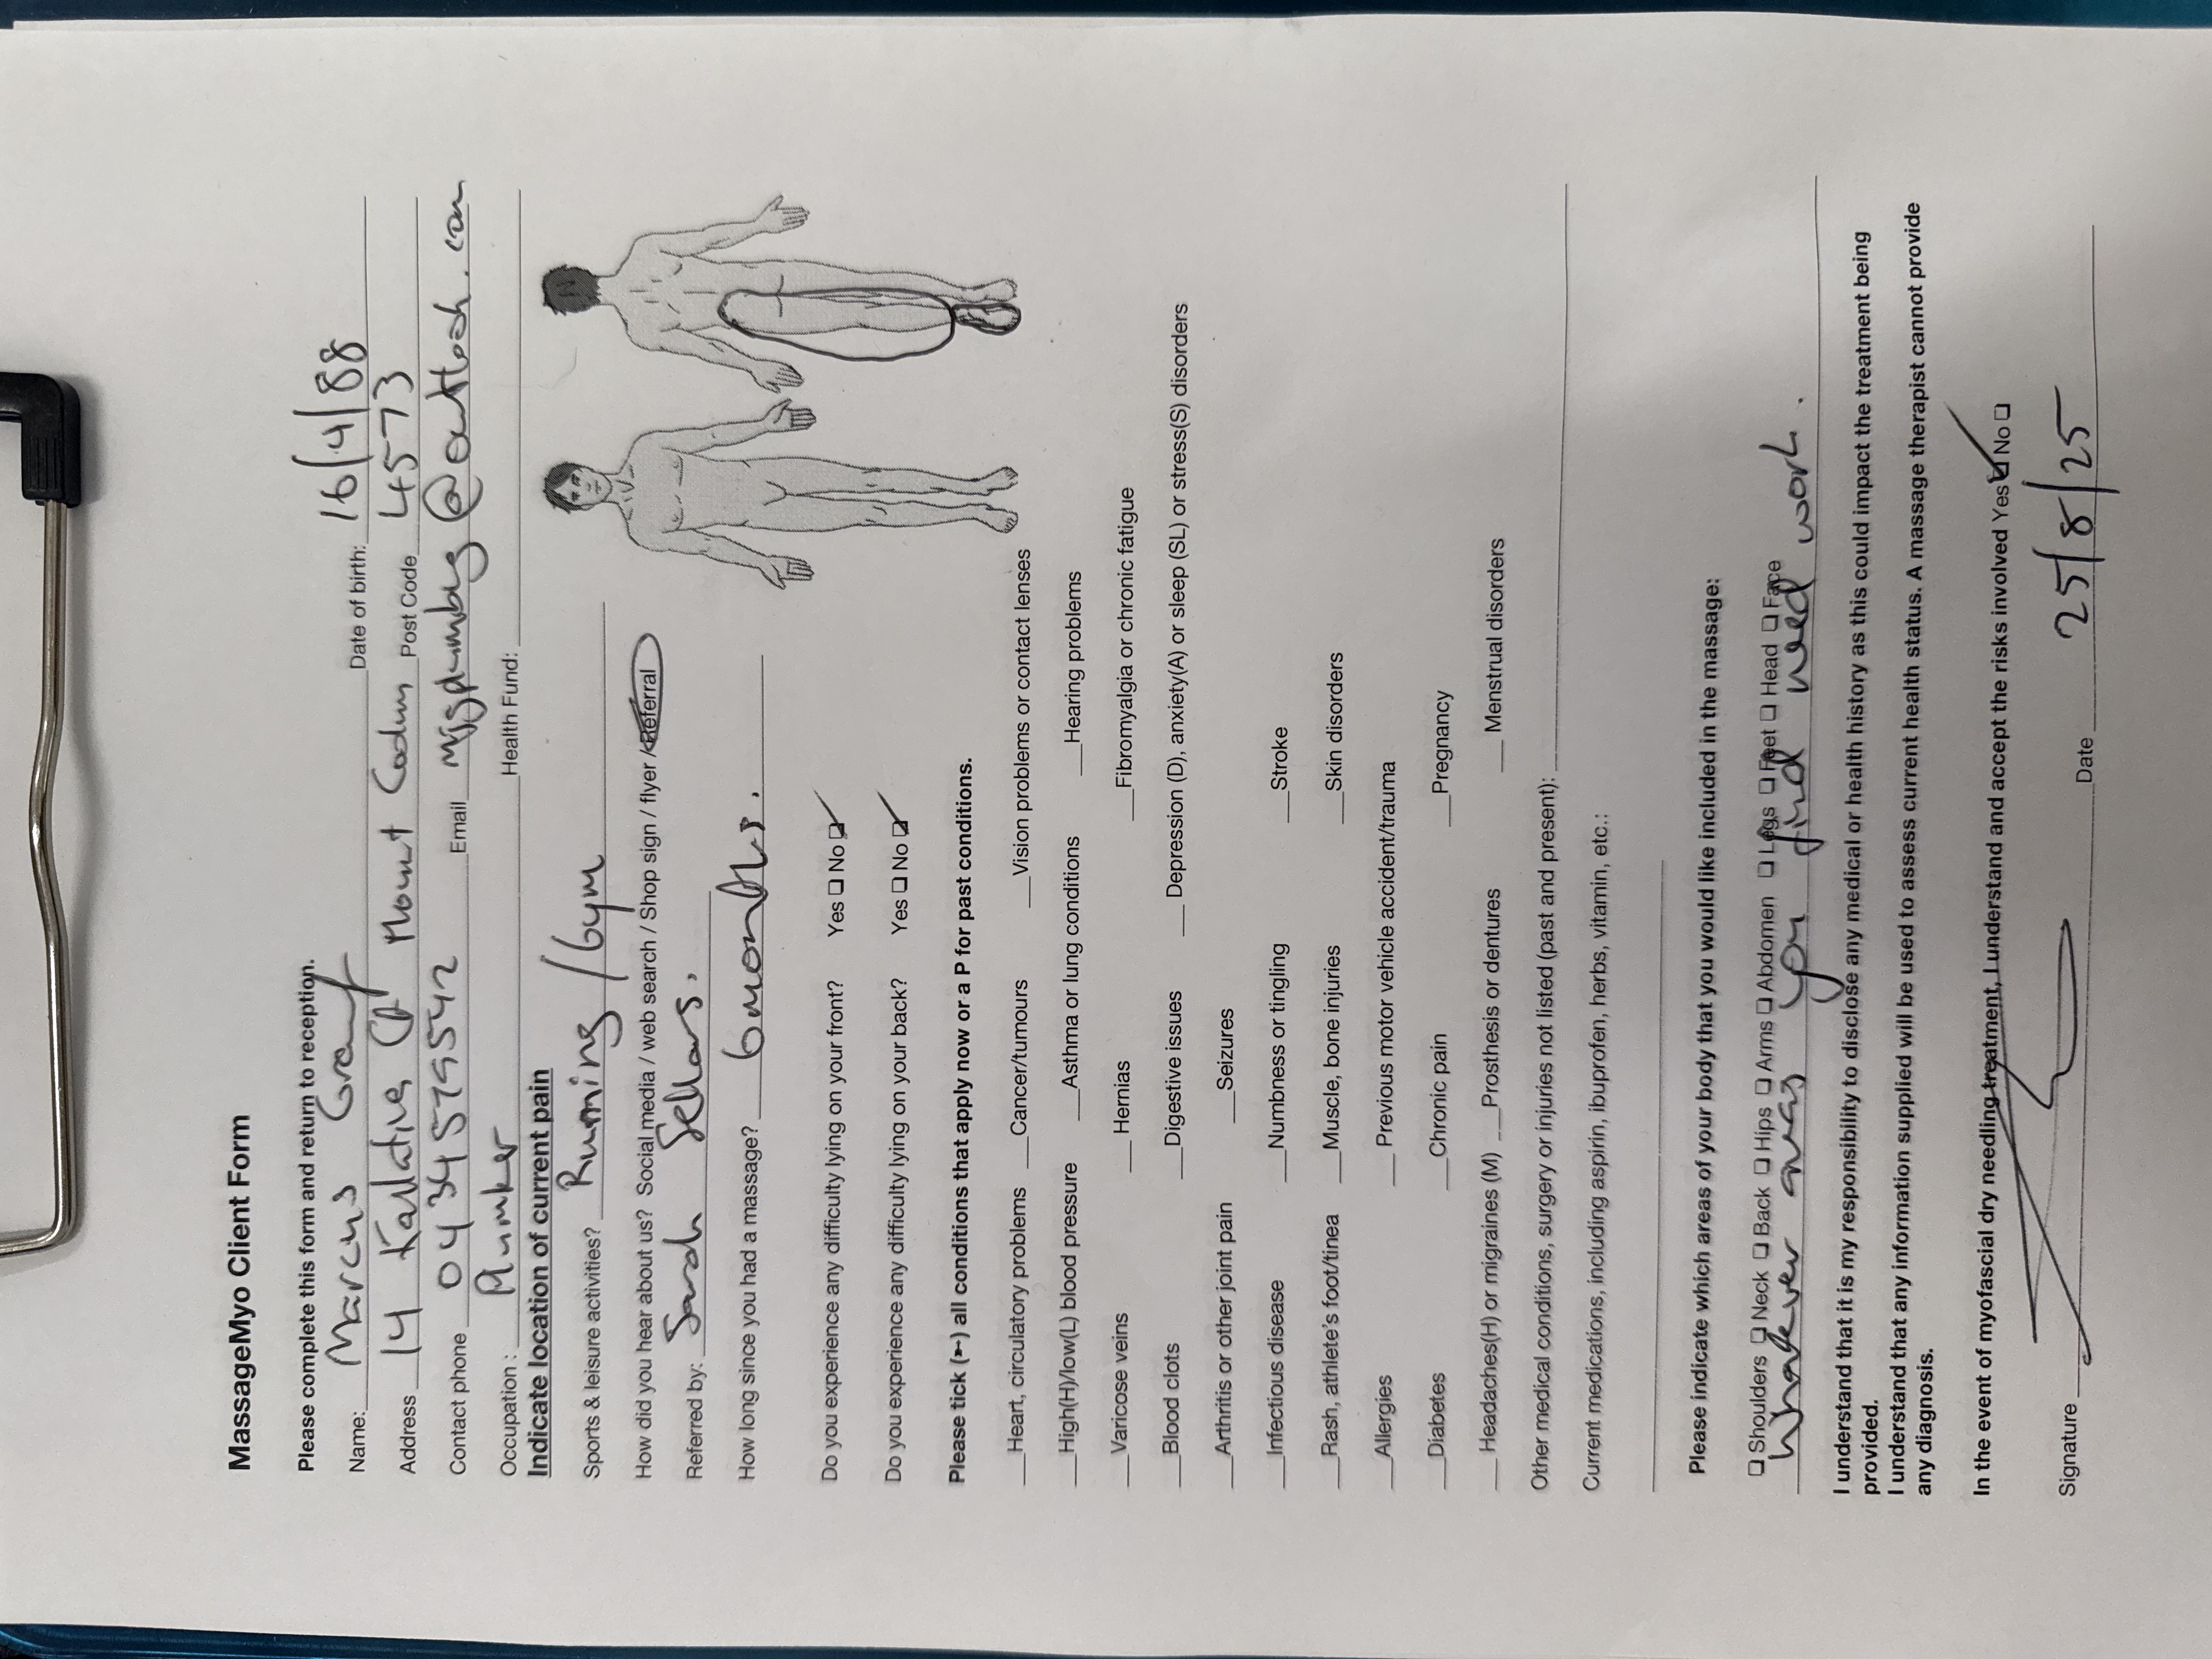 MassageMyo Client Form
Please complete this form and return to reception.
Name: Marcus Graf Date of birth: 16/4/88
Address 14 Mount Post Code 4573
Contact phone 0434579542 Email @outlook.com
Occupation : Plumber Health Fund:
Indicate location of current pain
Sports & leisure activities? Running / Gym
How did you hear about us? Social media / web search / Shop sign / flyer / Referral
Referred by: Sarah Sellars.
How long since you had a massage? 6 months.
Do you experience any difficulty lying on your front? Yes ☐ No ☑
Do you experience any difficulty lying on your back? Yes ☐ No ☑
Please tick (➳) all conditions that apply now or a P for past conditions.
__Heart, circulatory problems __Cancer/tumours __Vision problems or contact lenses
__High(H)/low(L) blood pressure __Asthma or lung conditions __Hearing problems
__Varicose veins __ Hernias __Fibromyalgia or chronic fatigue
__Blood clots __Digestive issues __ Depression (D), anxiety(A) or sleep (SL) or stress(S) disorders
__Arthritis or other joint pain __Seizures
__Infectious disease __Numbness or tingling __Stroke
__Rash, athlete's foot/tinea __Muscle, bone injuries __Skin disorders
__Allergies __ Previous motor vehicle accident/trauma
__Diabetes __Chronic pain __Pregnancy
__ Headaches(H) or migraines (M) __Prosthesis or dentures __ Menstrual disorders
Other medical conditions, surgery or injuries not listed (past and present):
Current medications, including aspirin, ibuprofen, herbs, vitamin, etc.:
Please indicate which areas of your body that you would like included in the massage:
☐ Shoulders ☐ Neck ☐ Back ☐ Hips ☐ Arms ☐ Abdomen ☐ Legs ☐ Feet ☐ Head ☐ Face
whatever areas you find need work.
I understand that it is my responsibility to disclose any medical or health history as this could impact the treatment being
provided.
I understand that any information supplied will be used to assess current health status. A massage therapist cannot provide
any diagnosis.
In the event of myofascial dry needling treatment, I understand and accept the risks involved Yes ☑ No ☐
Signature Date 25/8/25